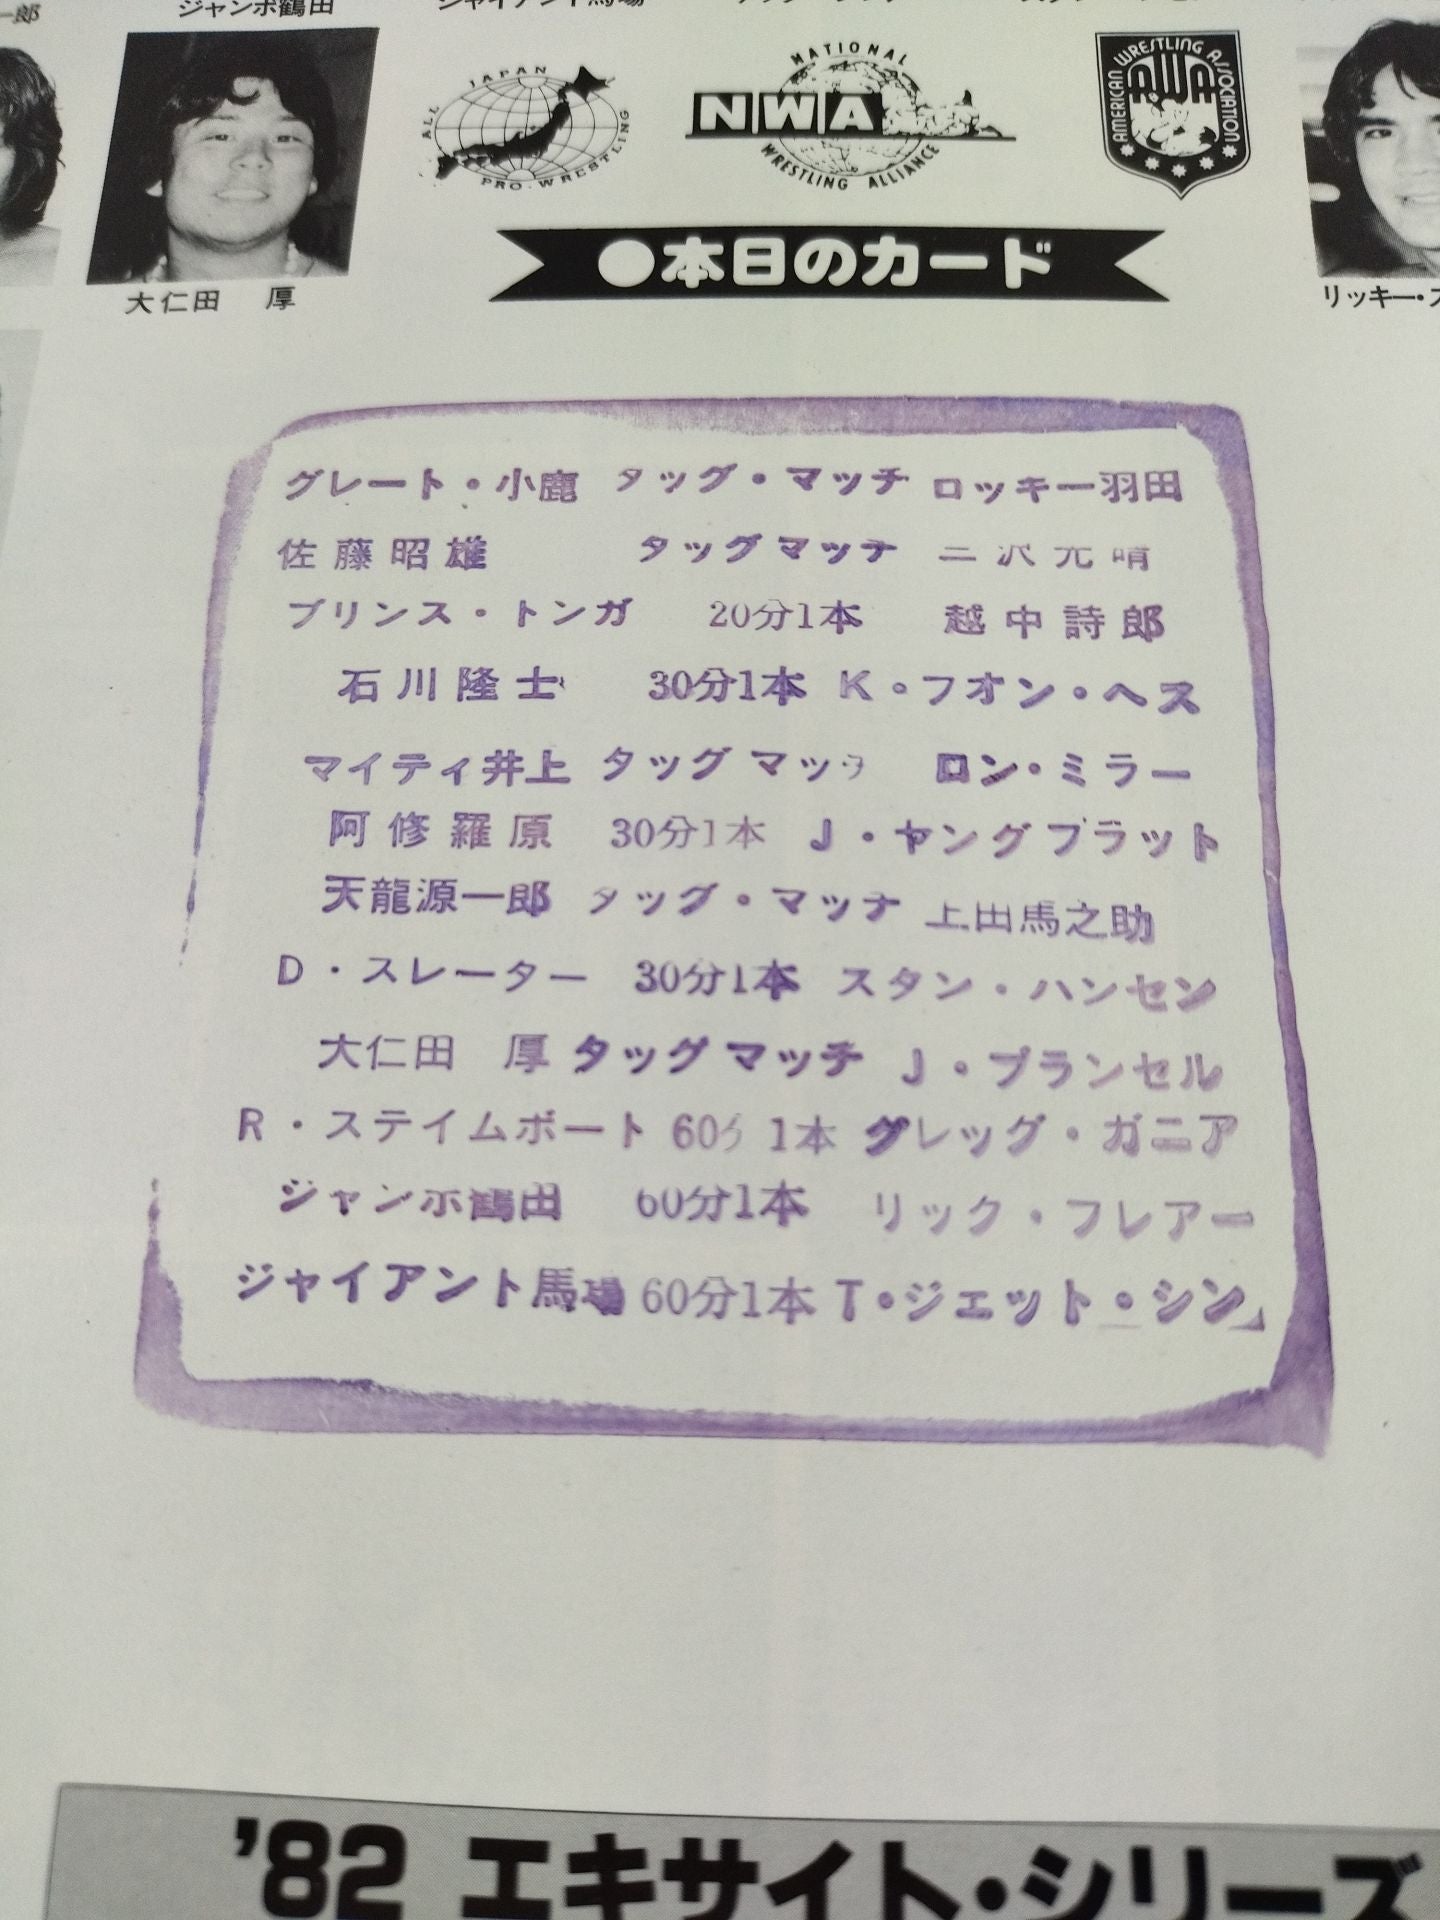 ジャンボ鶴田
大仁田 厚
ALL JAPAN PRO-WRESTLING
NATIONAL
NWA
WRESTLING ALLIANCE
AMERICAN WRESTLING ASSOCIATION
AWA
リッキー・ス
●本日のカード
グレート・小鹿 タッグ・マッチ ロッキー羽田
佐藤昭雄 タッグマッチ 三沢光晴
プリンス・トンガ 20分1本 越中詩郎
石川隆士 30分1本 K・フオン・ヘス
マイティ井上 タッグマッチ ロン・ミラー
阿修羅原 30分1本 J・ヤングブラット
天龍源一郎 タッグ・マッチ 上田馬之助
D・スレーター 30分1本 スタン・ハンセン
大仁田 厚 タッグマッチ J・ブランセル
R・ステイムボート 60分1本 グレッグ・ガニア
ジャンボ鶴田 60分1本 リック・フレアー
ジャイアント馬場 60分1本 T・ジェット・シン
'82 エキサイト・シリーズ